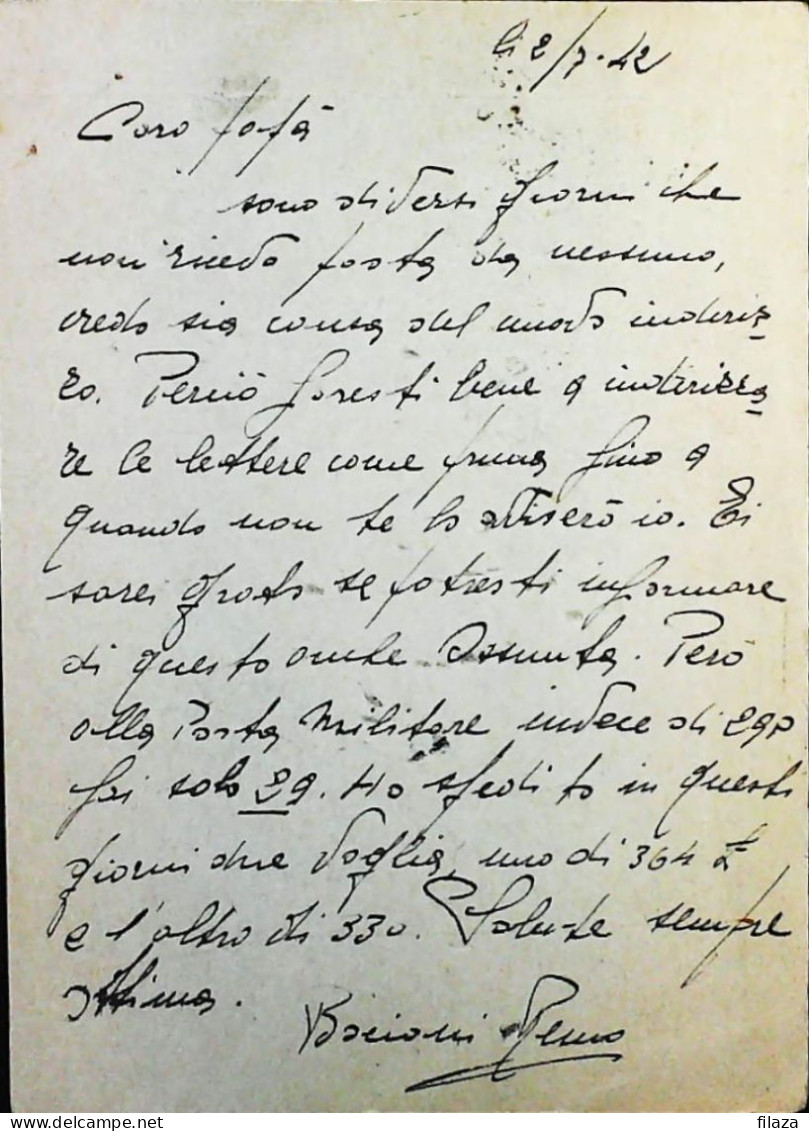 li 2/7.42
Caro papà
sono diversi giorni che
non ricevo posta da nessuno,
credo sia causa del nuovo indiriz-
zo. Perciò faresti bene a indirizza-
re le lettere come prima fino a
quando non te lo avviserò io. Ti
sarei grato se potresti informare
di questo anche Assunta. Però
alla Posta Militare invece di 290
fai solo 29. Ho spedito in questi
giorni due vaglia, uno di 364 £
e l'altro di 330. Salute sempre
ottima.
Bacioni Remo
filaza